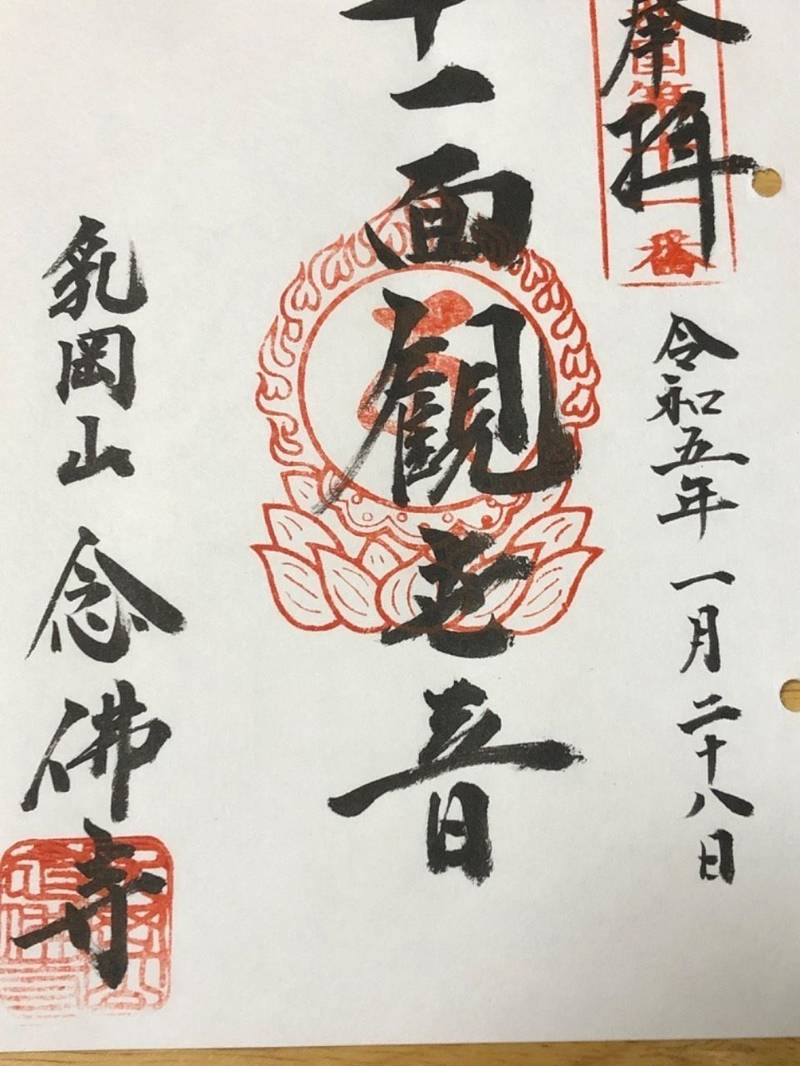 奉拝
国第十一番
令和五年 一月二十八日
十一面観世音
乳岡山 念佛寺